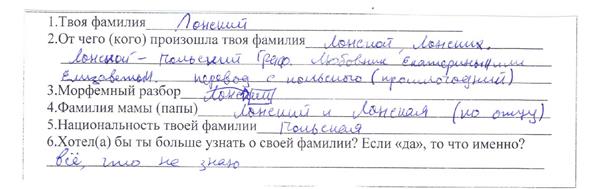 1.Твоя фамилия Лонский
2.От чего (кого) произошла твоя фамилия Лонской, Лонских,
Лонской – Польский Граф. Любовник Екатерины или
Елизаветы. перевод с польского (прошлогодний)
3.Морфемный разбор Лонский
4.Фамилия мамы (папы) Лонский и Лонская (по отцу)
5.Национальность твоей фамилии Польская
6.Хотел(а) бы ты больше узнать о своей фамилии? Если «да», то что именно?
всё, что не знаю